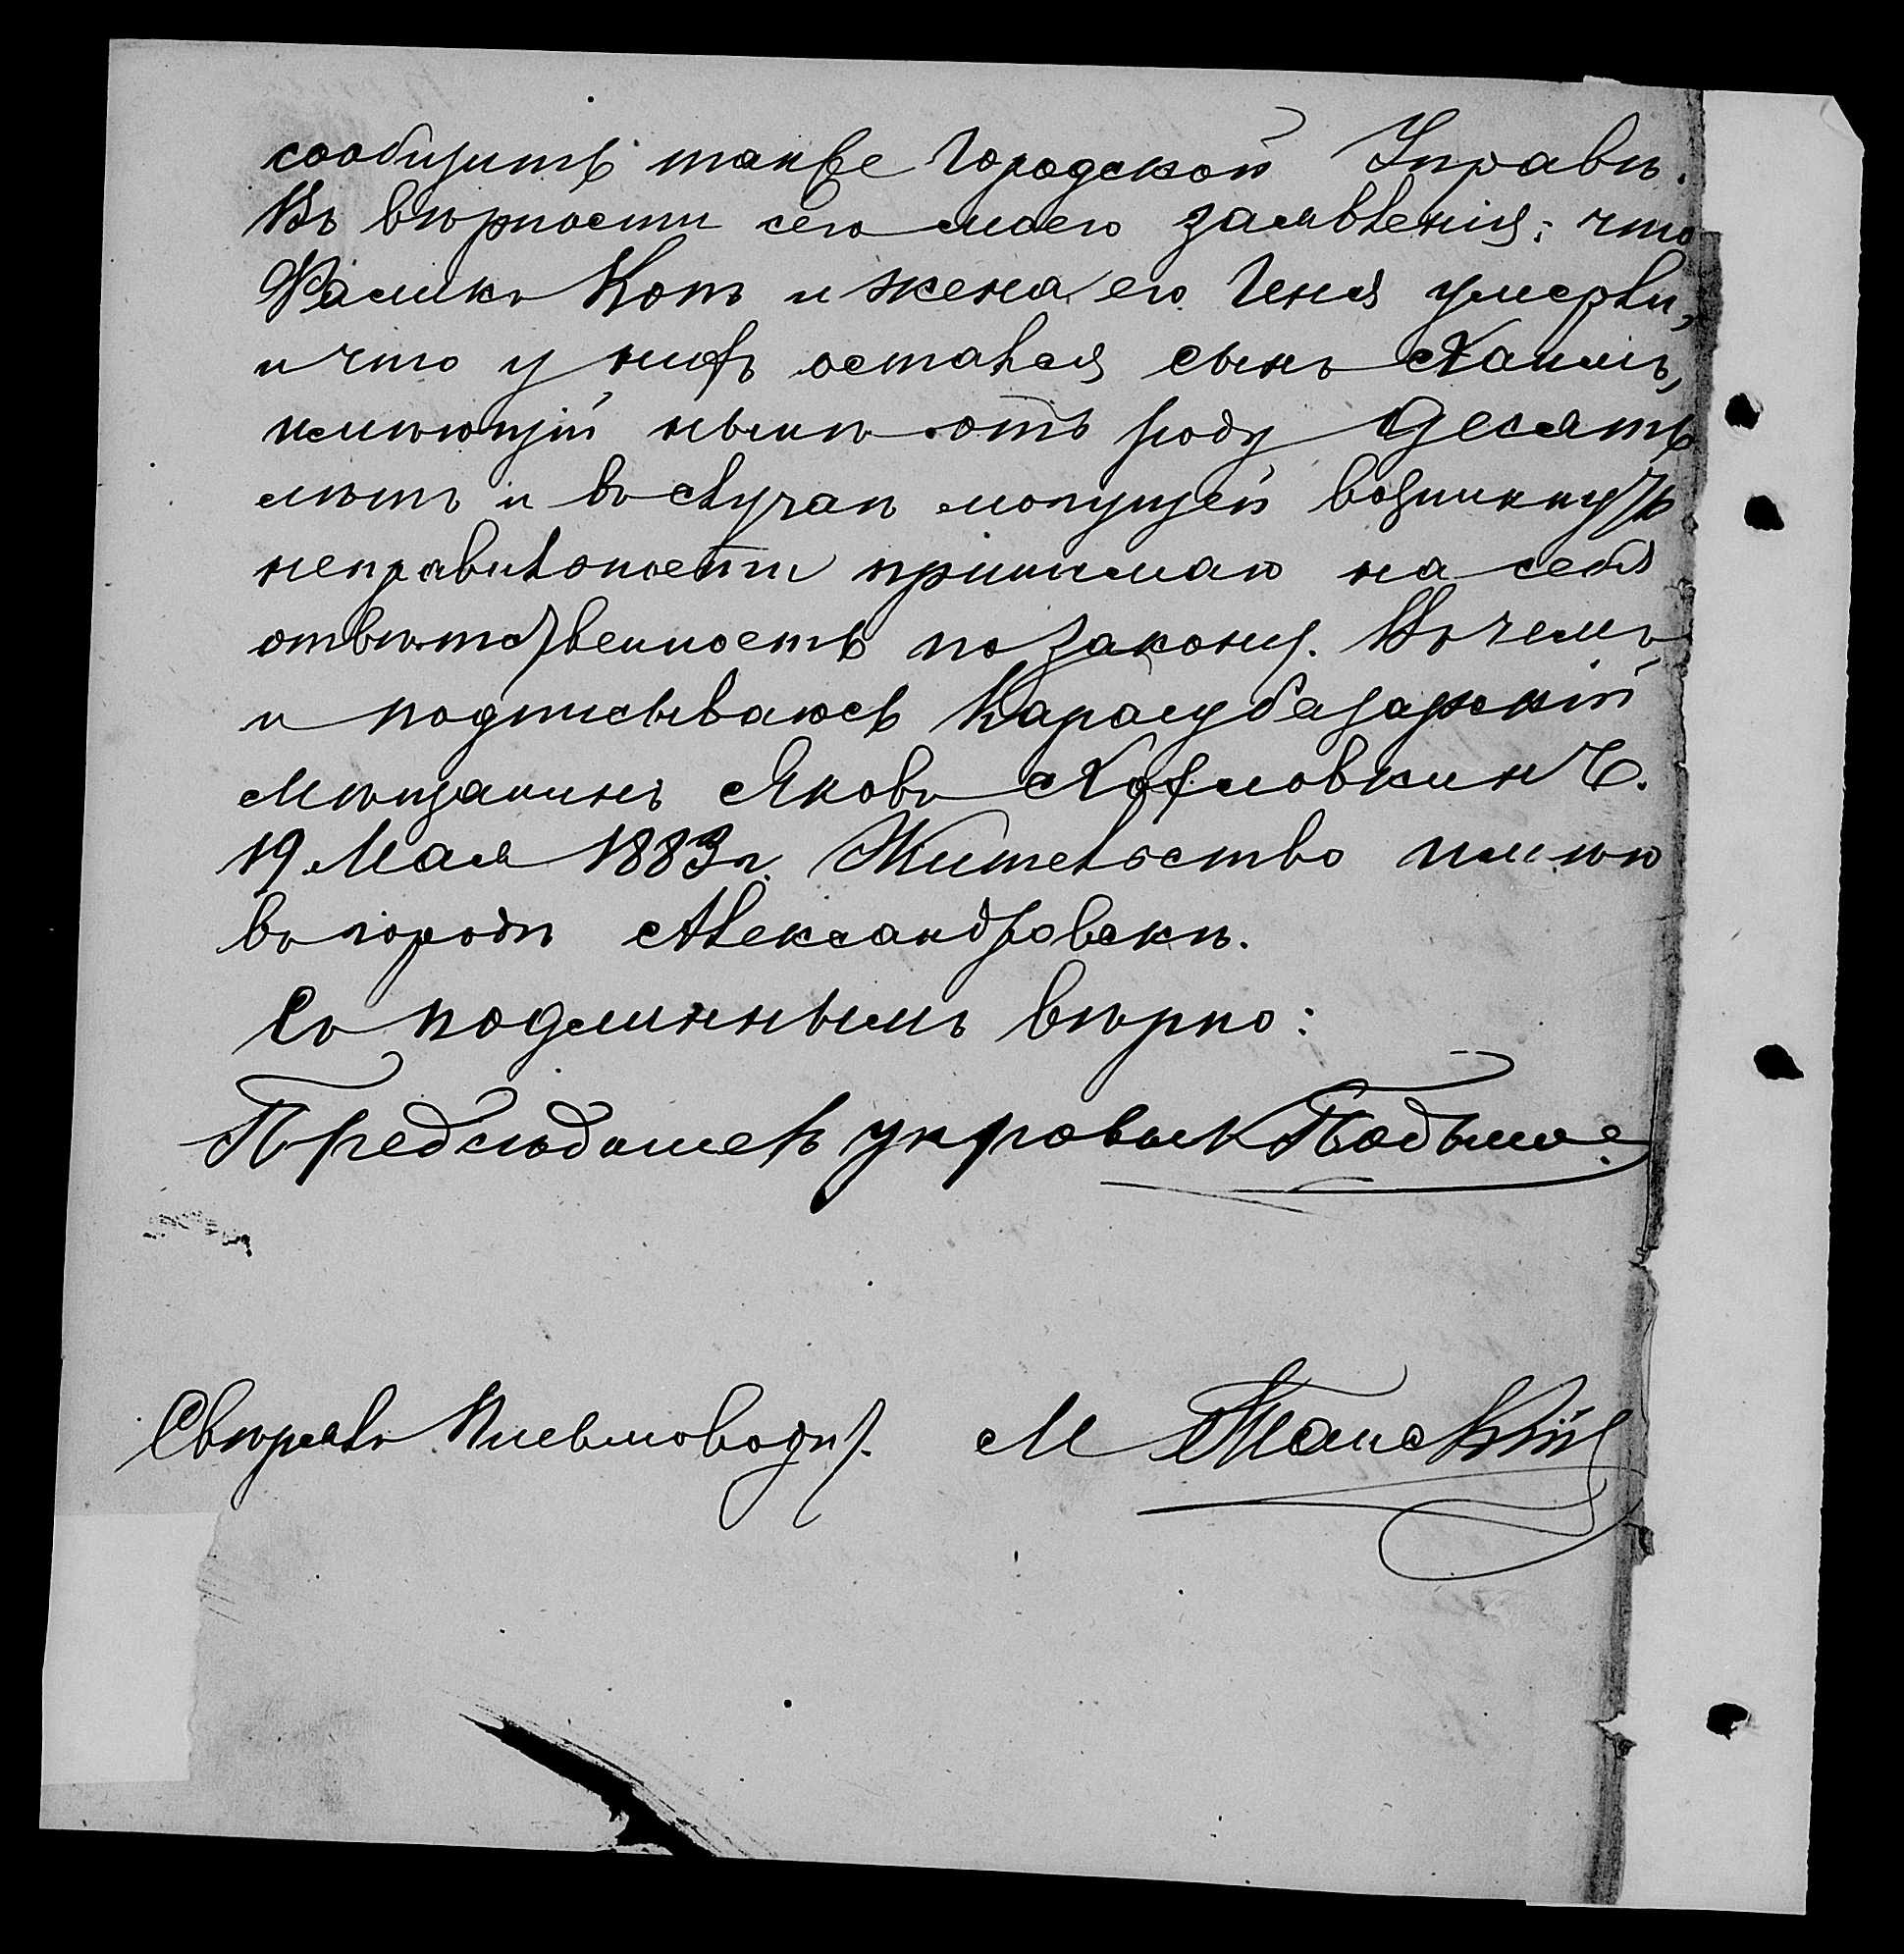 сообщить также Городской Управѣ.
Въ вѣрности сего моего заявленія: что
Фаликъ Котъ и жена его Геня умерли,
и что у нихъ остался сынъ Хаимъ,
имѣющій нынѣ отъ роду десять
лѣтъ и въ случаѣ могущей возникнуть
неправильности принимаю на себя
отвѣтственность по закону. Въ чемъ
и подписываюсь Карасубазарскій
мѣщанинъ Яковъ
19 Мая 1883 г. Жительство имѣю
въ городѣ Александровскѣ.
Съ подлиннымъ вѣрно:
Предсѣдатель управы
Свѣрялъ Письмоводит. М